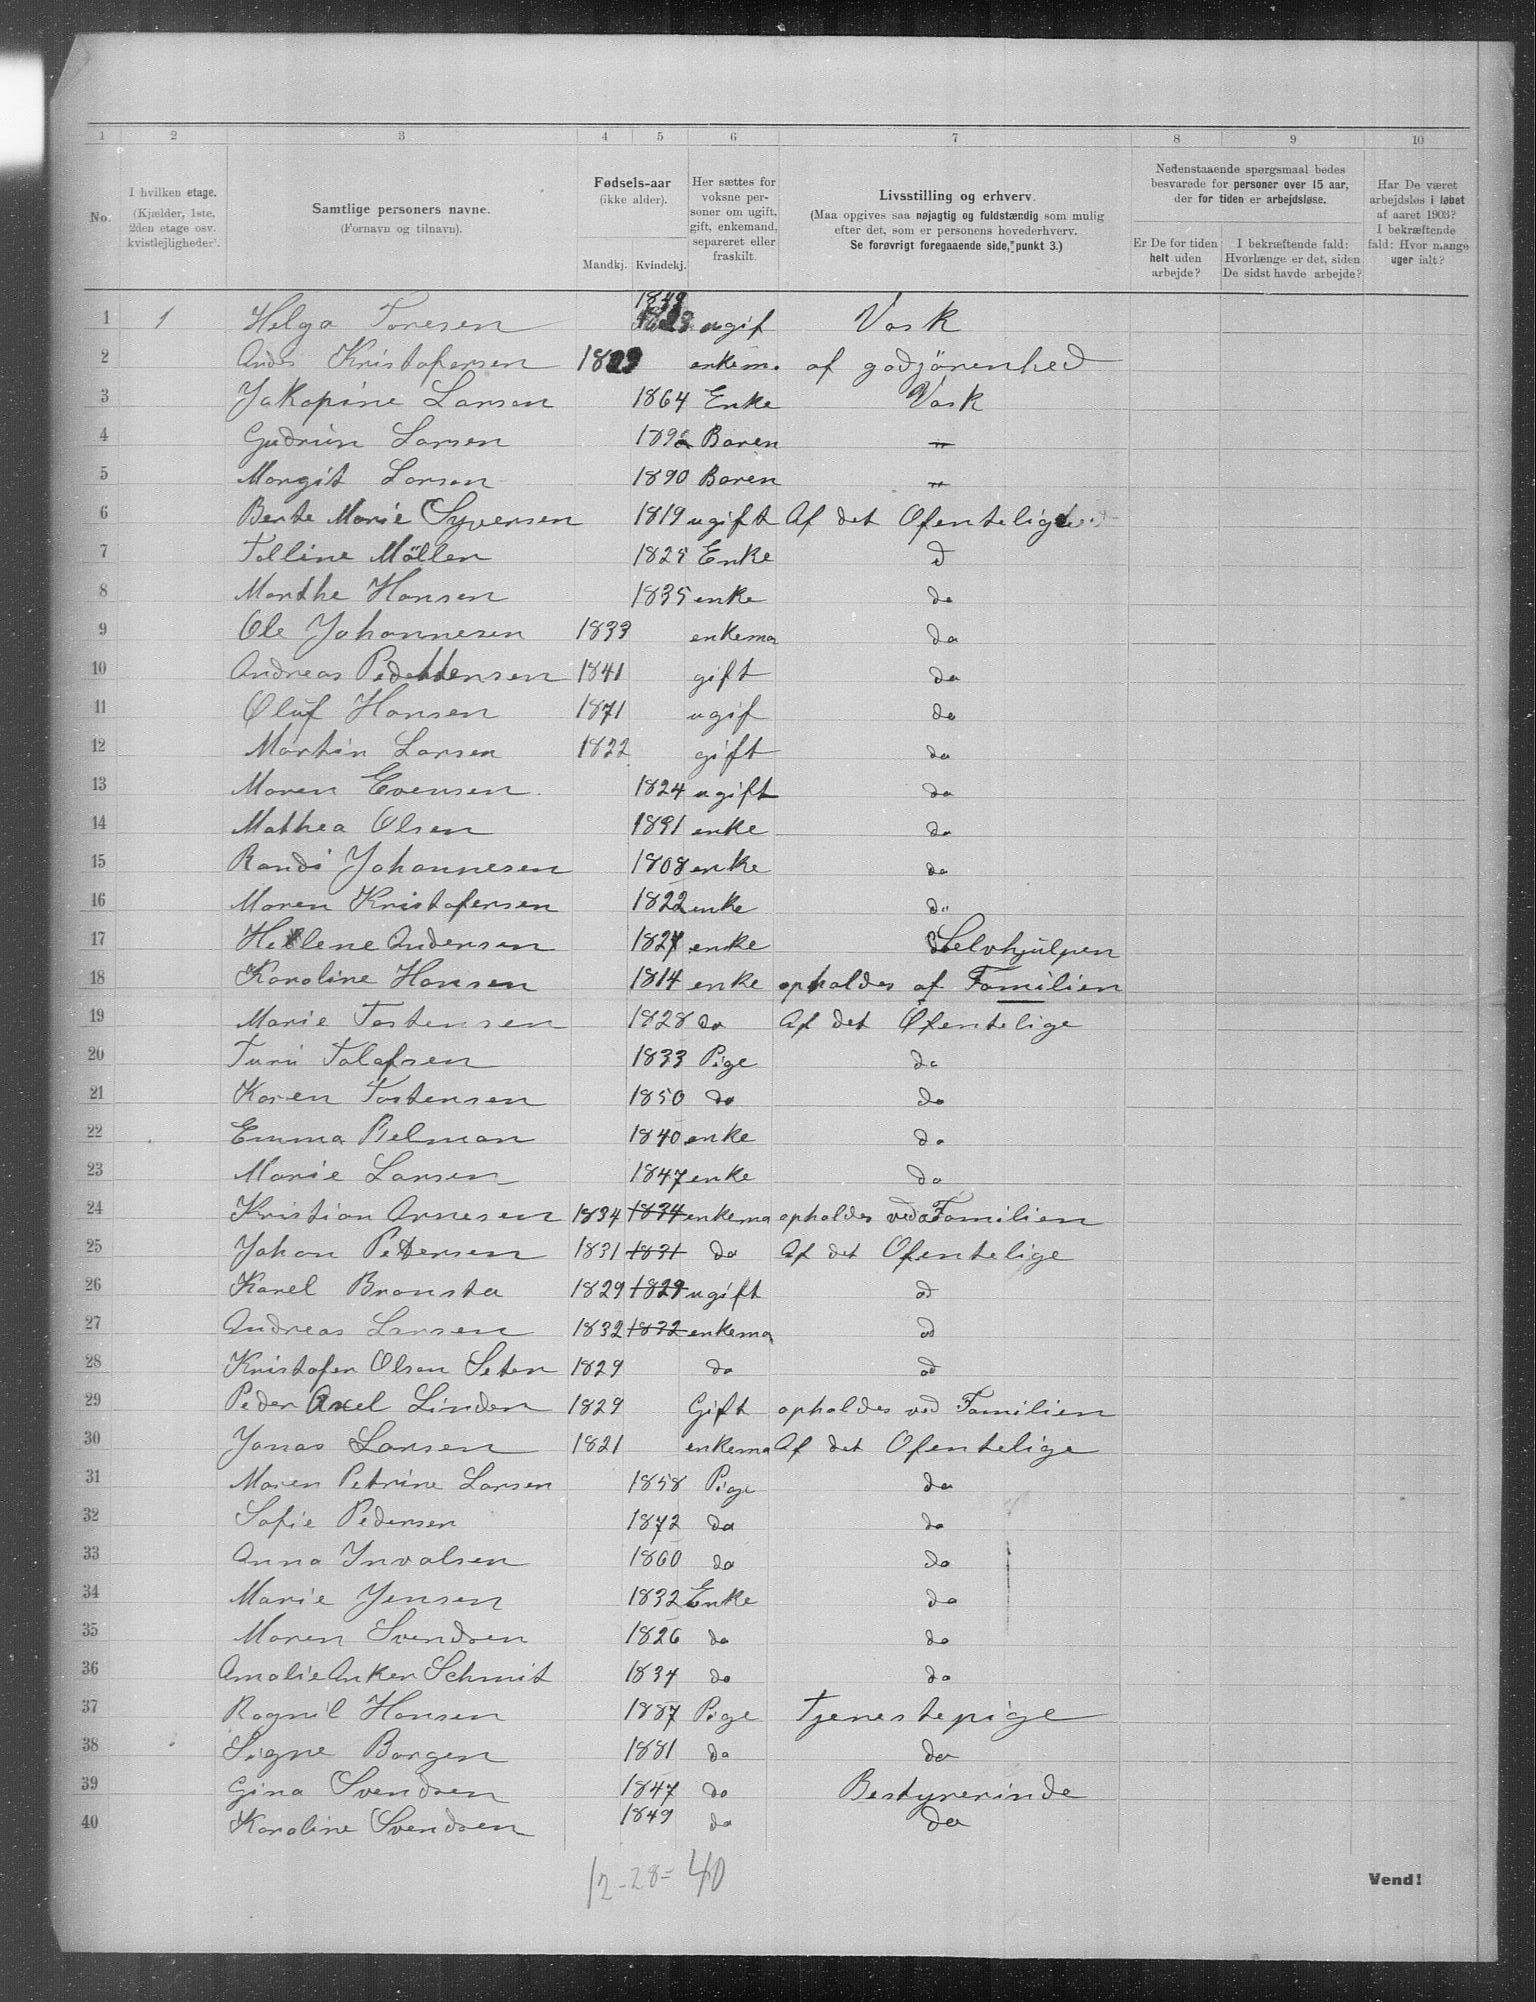 1 2 3 4 5 6 7 8 9 10
No.
I hvilken etage.
(Kjælder, 1ste,
2den etage osv.
kvistlejligheder).
Samtlige personers navne.
(Fornavn og tilnavn).
Fødsels-aar
(ikke alder).
Mandkj. Kvindekj.
Her sættes for
voksne per-
soner om ugift,
gift, enkemand,
separeret eller
fraskilt.
Livsstilling og erhverv.
(Maa opgives saa nøjagtig og fuldstændig som mulig
efter det, som er personens hovederhverv.
Se forøvrigt foregaaende side, punkt 3.)
Nedenstaaende spørgsmaal bedes
besvarede for personer over 15 aar,
der for tiden er arbejdsløse.
Er De for tiden
helt uden
arbejde?
I bekræftende fald:
Hvorlænge er det, siden
De sidst havde arbejde?
Har De været
arbejdsløs i løbet
af aaret 1903?
I bekræftende
fald: Hvor mange
uger ialt?
1 1 Helga Toresen 1849 ugif Vask
2 Kristofersen enkem. af godjörenhed
3 Jakopine Larsen 1864 Enke Vask
4 Gudrun Larsen Baren "
5 Margit Larsen 1890 Baren "
6 Berte Marie Syversen 1819 ugift Af det Ofentelig
7 Tolline Möllen 1825 Enke d
8 Marthe Hansen 1835 enke do
9 Ole Johannesen 1833 enkema do
10 Andreas 1841 gift do
11 Oluf Hansen 1871 ugif do
12 Martin Larsen 1822 gift do
13 Maren Evensen 1824 ugift do
14 Mathea Olsen 1891 enke do
15 Randi Johannesen 1808 enke do
16 Maren Kristofersen 1822 enke do
17 Hellene Andersen 1827 enke Selvhjulpen
18 Karoline Hansen 1814 enke opholdes af Familien
19 Marie Tostensen 1828 do Af det Ofentelige
20 Turi Tolofsen 1833 Pige do
21 Karen Tostensen 1850 do do
22 Emma Pelman 1840 enke do
23 Marie Larsen 1847 enke do
24 Kristian Arnesen 1834 1834 enkema opholdes ved Familien
25 Johan Petersen 1831 1831 do Af det Ofentelige
26 Karel Bronsta 1829 1829 ugift od
27 Andreas Larsen 1832 1832 enkema od
28 Kristofer Olsen Seter 1829 do od
29 Peder Axel Linden 1829 Gift opholdes ved Familien
30 Jonas Larsen 1821 enkema Af det Ofentelige
31 Maren Petrine Larsen 1858 Pige do
32 Sofie Pedersen 1872 do do
33 Anna Invalsen 1860 do do
34 Marie Jensen 1832 Enke do
35 Maren Svendsen 1826 do do
36 Amalie Anker Schmit 1834 do do
37 Ragnil Hansen 1887 Pige Tjenestepige
38 Signe Borgen 1881 do do
39 Gina Svendsen 1847 do Bestyrerinde
40 Karoline Svendsen 1849 do do
12-28=40
Vend!